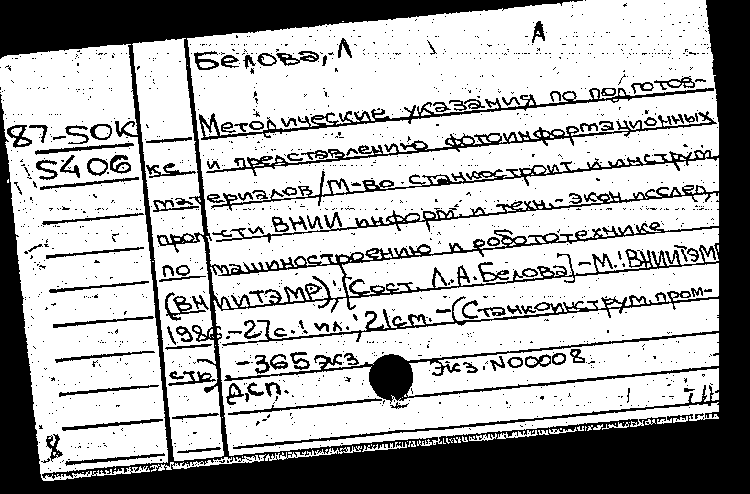 Белова, Л
А
87-50К
5406
Методические указания по подготов-
ке и представлению фотоинформационных
материалов / М-во станкостроит. и инструм.
пром-сти, ВНИИ информ. и техн.-экон. исслед.
по машиностроению и робототехнике
(ВНИИТЭМР); [Сост. Л.А.Белова] - М.: ВНИИТЭМР
1986. - 27с.: ил.; 21см. - (Станкоинструм. пром-
сть). - 365 экз.
экз. N00008.
Д,СП.
8